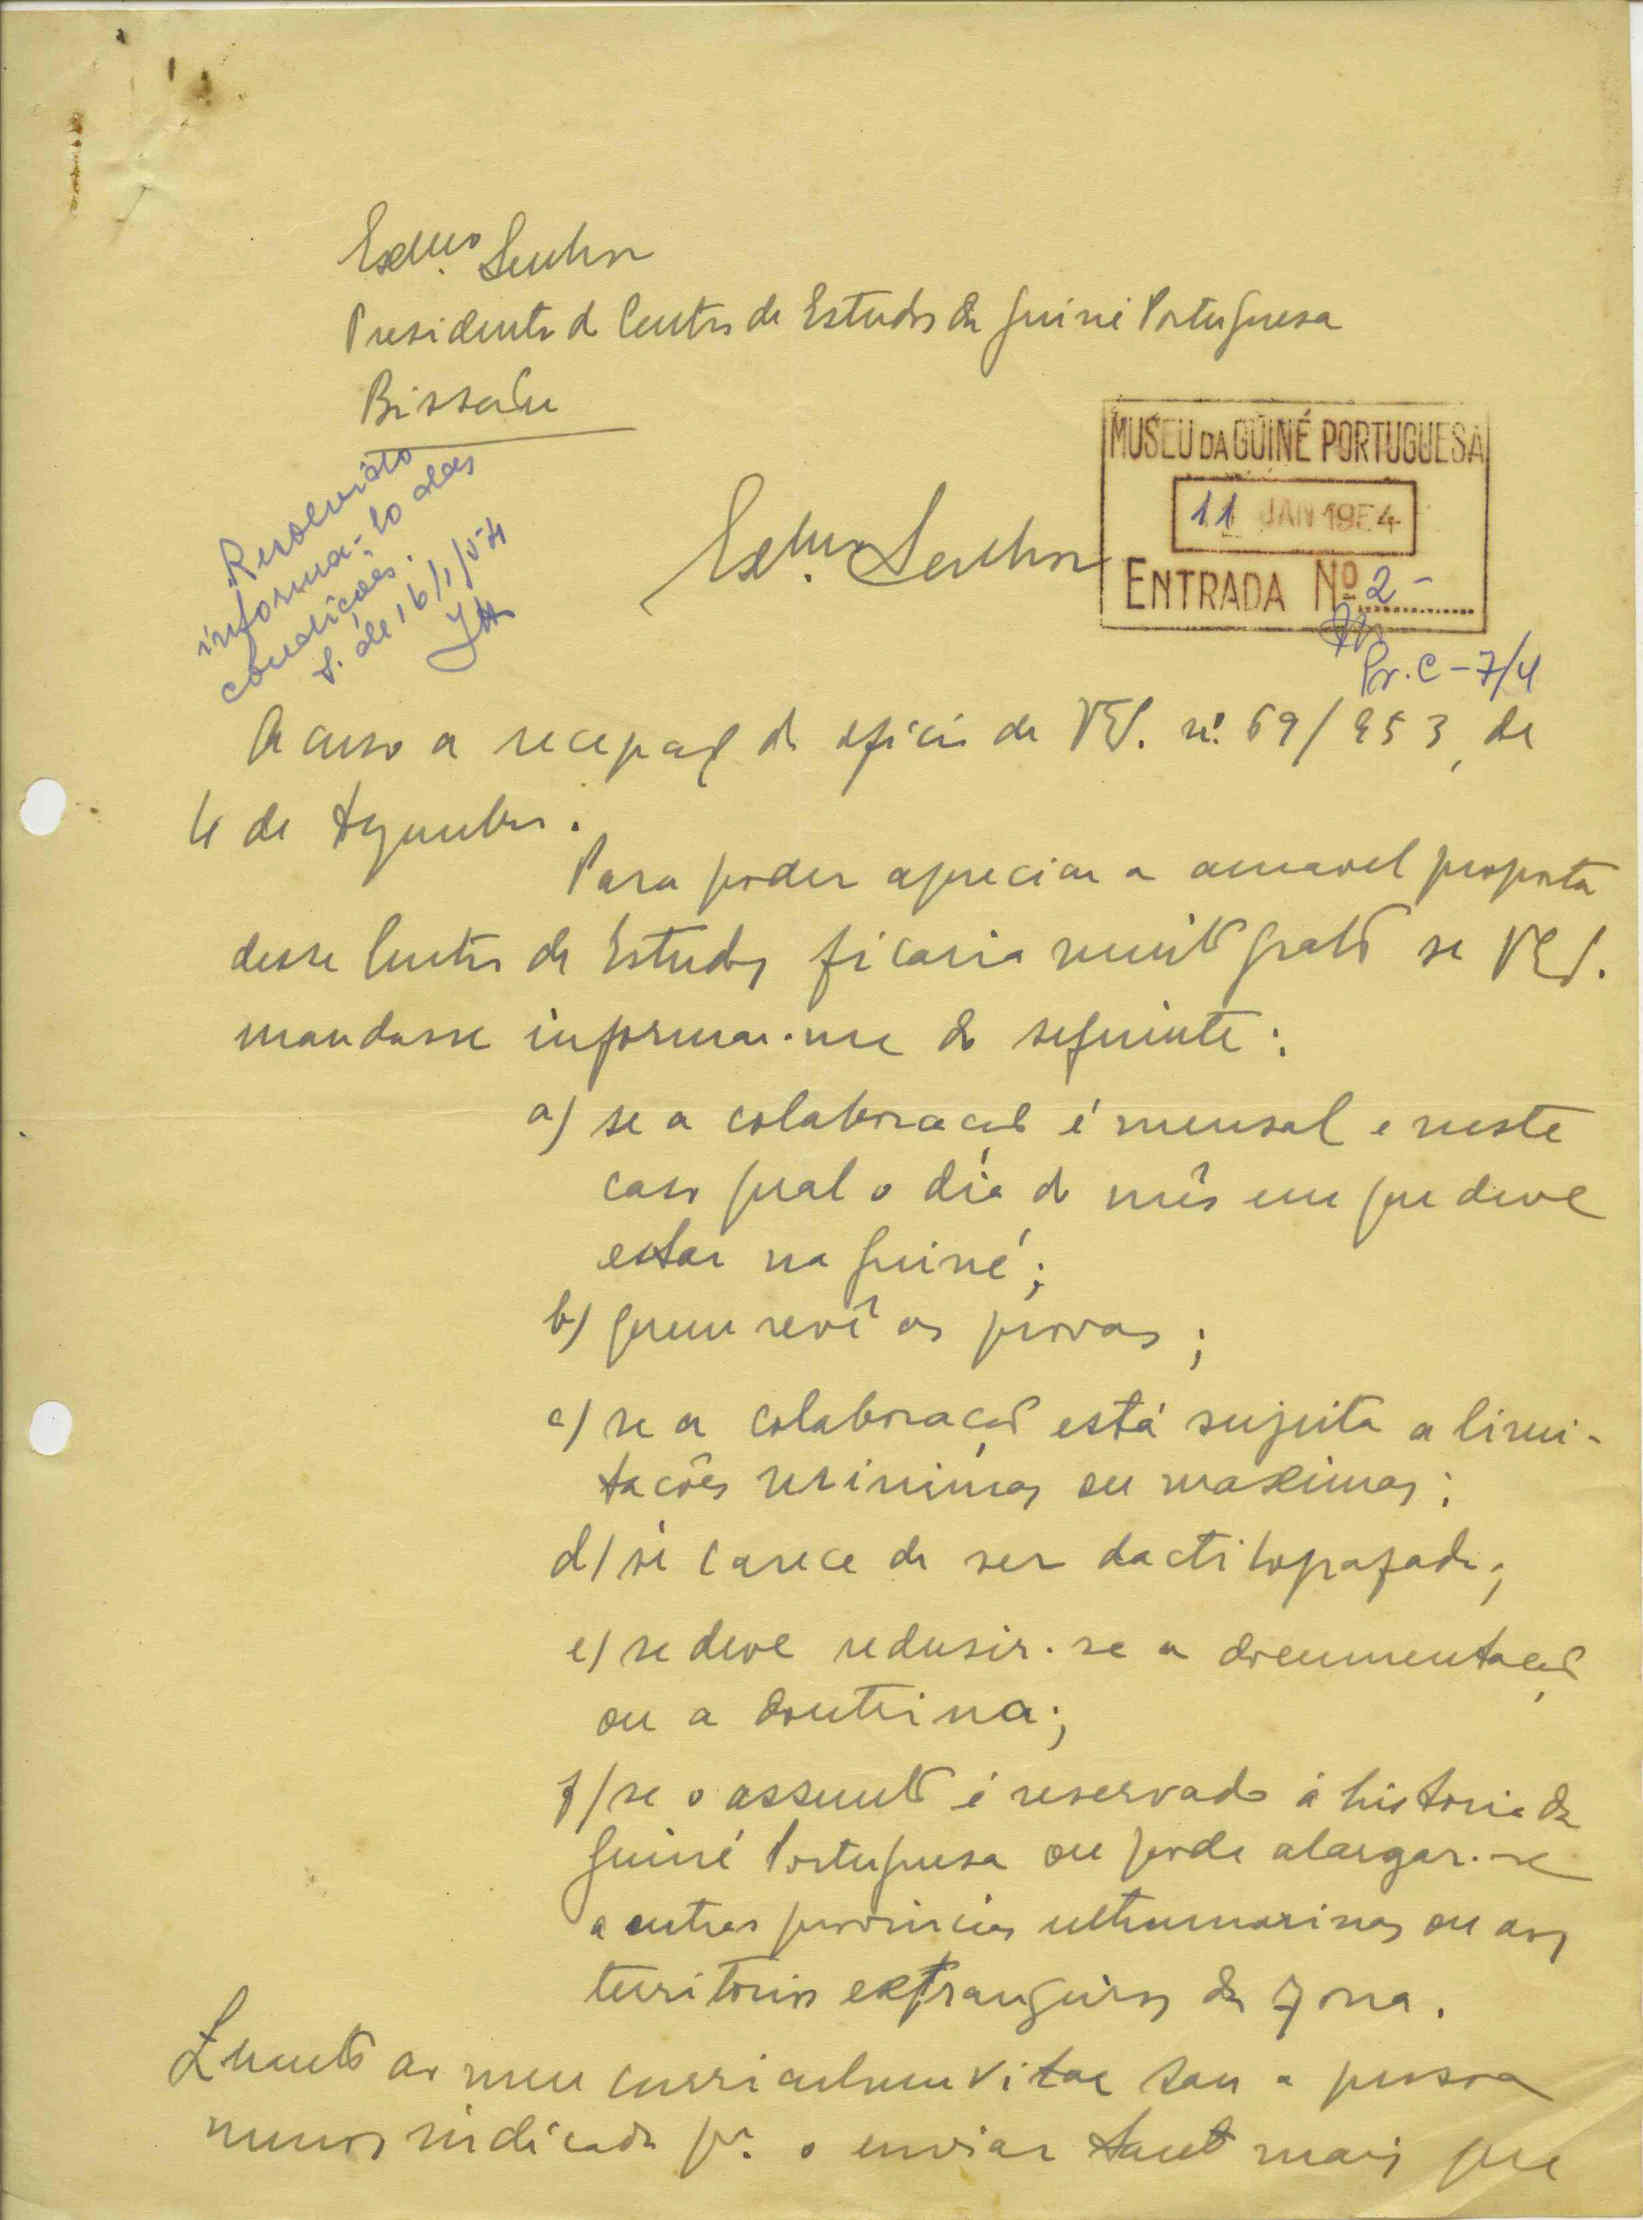 Exmo. Senhor
Presidente do Centro de Estudos da Guiné Portuguesa
Bissáu
Resolvido
informa-lo das
condições.
S. de 16/1/54
MUSEU DA GUINÉ PORTUGUESA
11 JAN 1954
ENTRADA Nº 2 -
Pr. C - 7/4
Exmo. Senhor
Acuso a recepção do oficio de VEx. nº. 69/953, de
4 de dezembro.
Para poder apreciar a amavel proposta
desse Centro de Estudos ficaria muito grato se VEx.
mandasse informar-me do seguinte:
a) se a colaboração é mensal e neste
caso qual o dia do mês em que deve
estar na Guiné;
b) quem revê as provas;
c) se a colaboração está sujeita a limi-
tações minimas ou maximas;
d) se carece de ser dactilografada;
e) se deve redusir-se a documentação
ou a doutrina;
f) se o assunto é reservado á historia da
Guiné Portuguesa ou pode alargar-se
a outras provincias ultramarinas ou aos
territorios extrangeiros da zona.
Quanto ao meu curriculum vitae sou a pessoa
menos indicada pa. o enviar tanto mais que